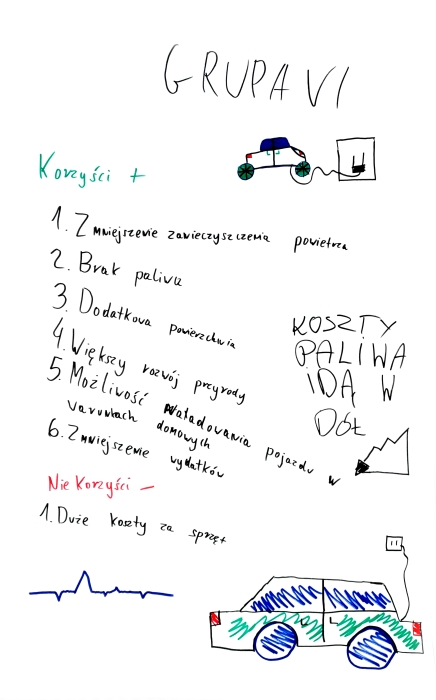 GRUPA VI
Korzyści +
1. Zmniejszenie zanieczyszczenia powietrza
2. Brak paliwa
3. Dodatkowa powierzchnia
4. Większy rozwój przyrody
5. Możliwość naładowania pojazdu w
warunkach domowych
6. Zmniejszenie wydatków
KOSZTY
PALIWA
IDĄ W
DÓŁ
Nie Korzyści -
1. Duże koszty za sprzęt